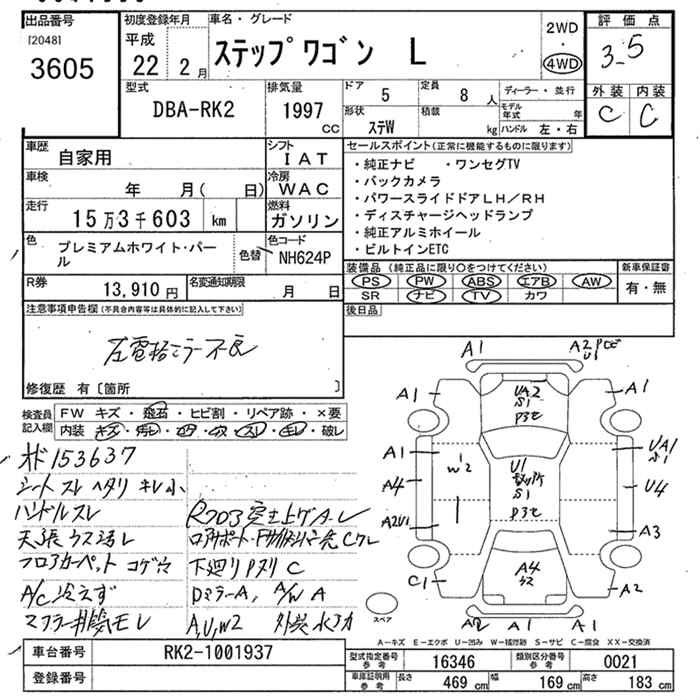 出品番号
[2048]
3605
初度登録年月
平成
22 2月
車名・グレード
ステップワゴン L
2WD
・
4WD
評価点
3.5
外装 内装
C C
型式
DBA-RK2
排気量
1997
CC
ドア 5
定員 8 人
形状 ステW
積載 kg
ディーラー・並行
モデル年式 年
ハンドル 左・右
車歴
自家用
シフト
IAT
車検
年 月( 日)
冷房
WAC
走行
15万3千603 km
燃料
ガソリン
色
プレミアムホワイト・パール
色替
色コード
NH624P
R券
13,910円
名変通知期限
月 日
セールスポイント(正常に機能するものに限ります)
・純正ナビ ・ワンセグTV
・バックカメラ
・パワースライドドアLH/RH
・ディスチャージヘッドランプ
・純正アルミホイール
・ビルトインETC
装備品(純正品に限り○をつけてください)
PS PW ABS エアB AW
SR ナビ TV カワ
新車保証書
有・無
後日品
注意事項申告欄(不具合内容等は具体的に記入して下さい)
左電格ミラー不良
修復歴 有〔箇所 〕
検査員記入欄
FW キズ・飛石・ヒビ割・リペア跡・×要
内装
破レ
153637
シートスレ ヘタリ キレ小
ハンドルスレ
フロアカーペット コゲ穴
A/C 冷えず
下廻りPヌリ C
DミラーA, A/W A
A,U,W2
A1
A2
U1
A1
A1
UA2
S1
P3セ
A1
UA1
S1
W2
U1
S1
P3セ
A4
U4
A2U1
A3
C1
A4
A2
A2
A1
A1
スペア
A-キズ E-エクボ U-凹み W-補修跡 S-サビ C-腐食 XX-交換済
車台番号
RK2-1001937
登録番号
型式指定番号
参考
16346
類別区分番号
参考
0021
車庫証明用
参考
長さ 469cm
幅 169cm
高さ 183cm